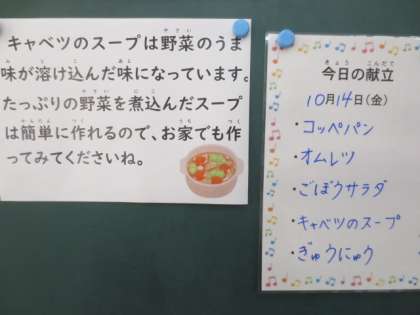 キャベツのスープは野菜のうま
味が溶け込んだ味になっています。
たっぷりの野菜を煮込んだスープ
は簡単に作れるので、お家でも作
ってみてくださいね。
今日の献立
10月14日(金)
・コッペパン
・オムレツ
・ごぼうサラダ
・キャベツのスープ
・ぎゅうにゅう